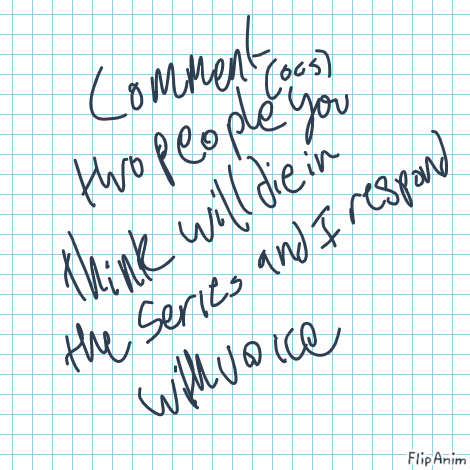 Comment (ocs)
two people you
think will die in
the series and I respond
with voice
FlipAnim